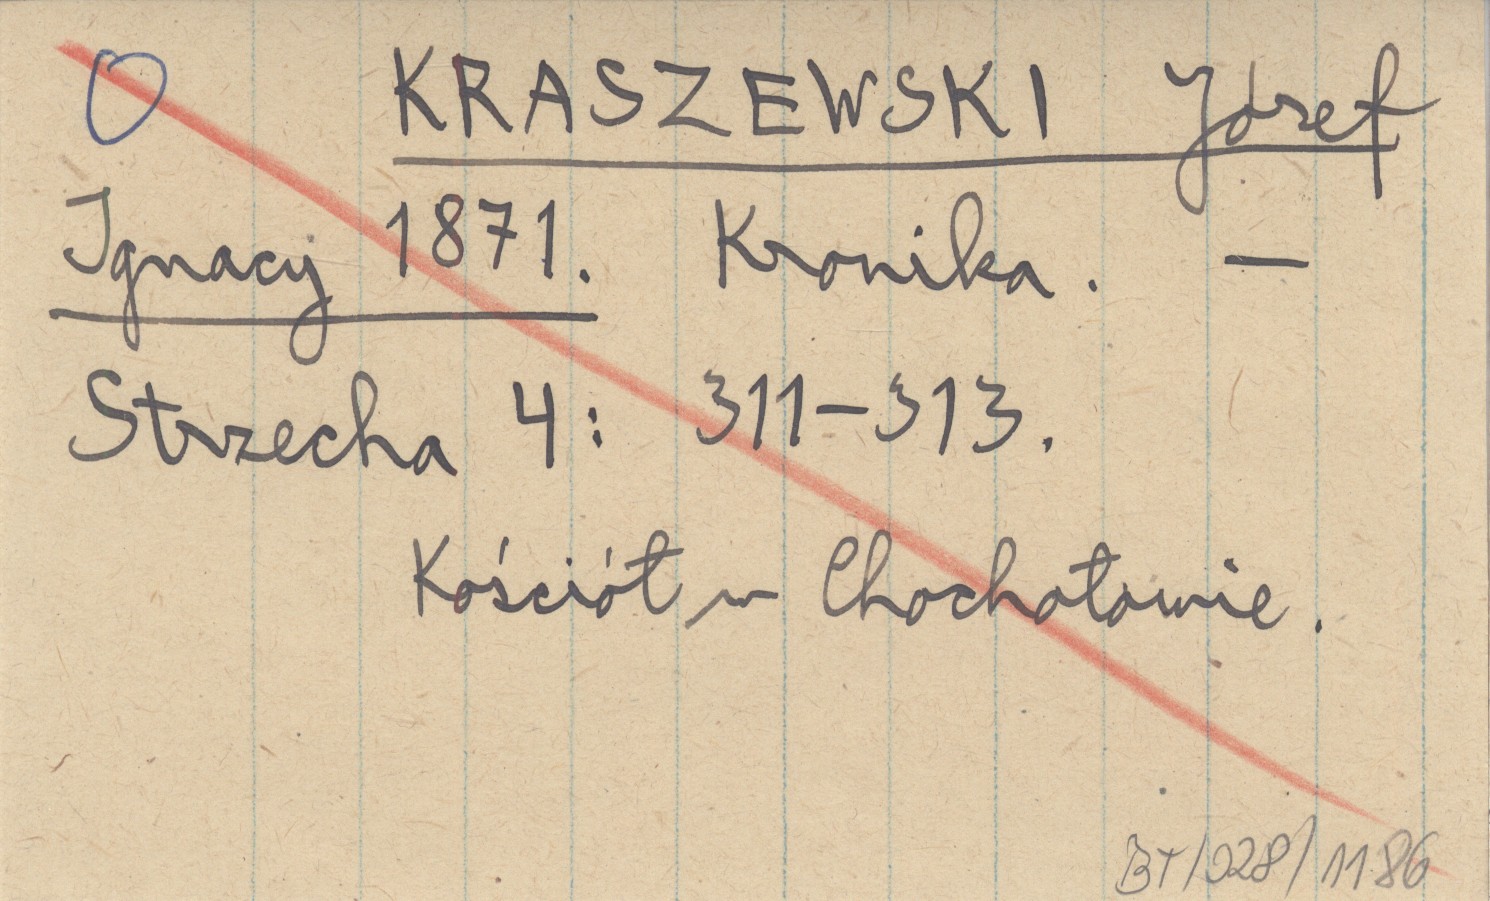 O KRASZEWSKI Józef
Ignacy 1871. Kronika. —
Strzecha 4: 311–313.
Kościół w Chochołowie.
BT/028/1186